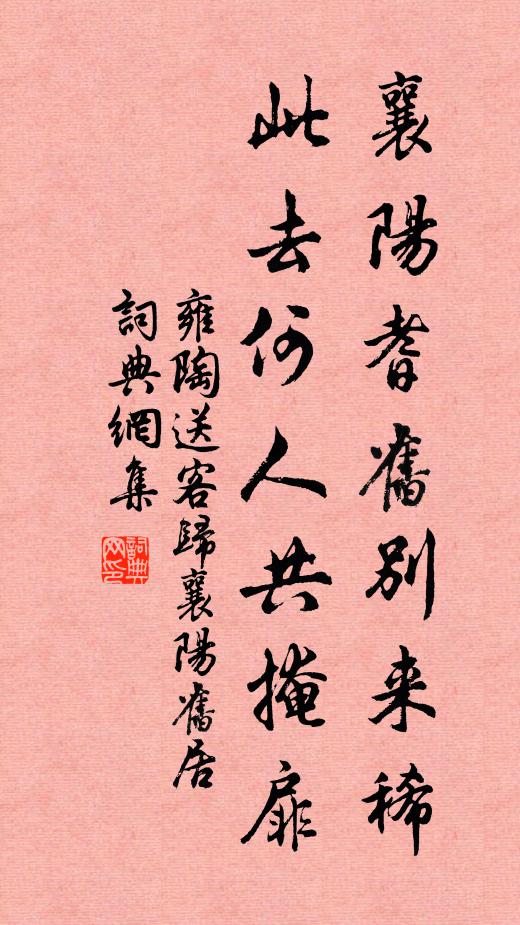 襄陽耆舊別来稀
此去何人共掩扉
雍陶送客歸襄陽舊居
詞典網集
詞典网印